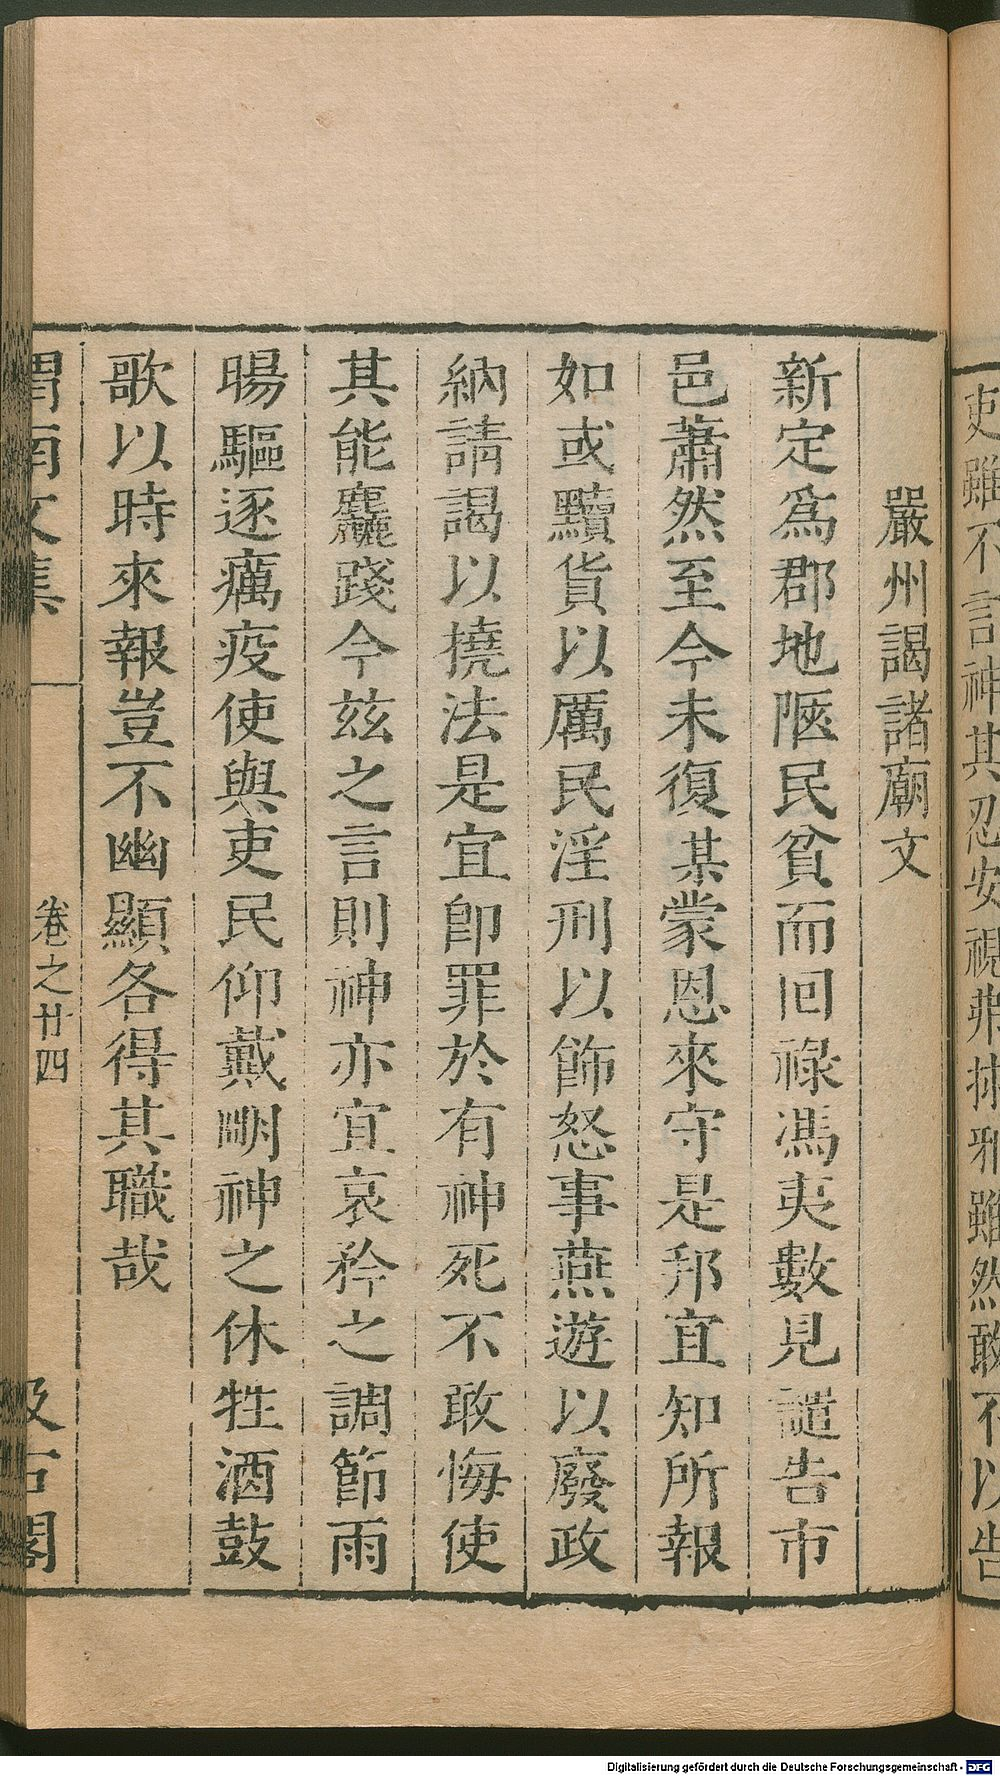 吏雖不言神其忍安視弗捄邪雖然敢不以告
嚴州謁諸廟文
新定爲郡地陿民貧而回祿馮夷數見譴告市
邑蕭然至今未復某蒙恩來守是邦宜知所報
如或黷貨以厲民淫刑以飾怒事燕遊以廢政
納請謁以撓法是宜卽罪於有神死不敢悔使
其能麤踐今兹之言則神亦宜哀矜之調節雨
暘驅逐癘疫使與吏民仰戴明神之休牲酒鼓
歌以時來報豈不幽顯各得其職哉
渭南文集
卷之廿四
汲古閣
Digitalisierung gefördert durch die Deutsche Forschungsgemeinschaft - DFG